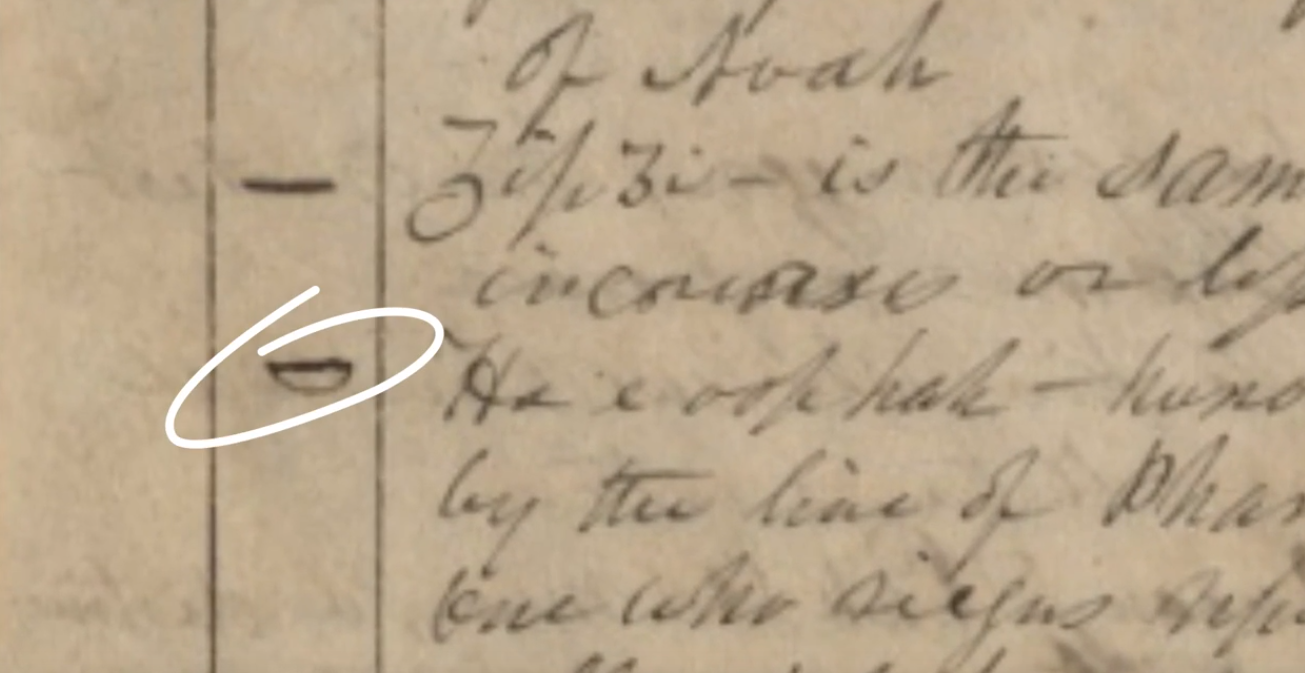 of Noah
Zip Zi - is the sam
or
Ha e oop hah - hono
by the line of Phar
one who reigns